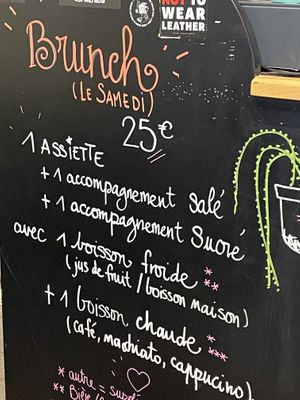 NOT TO
WEAR
LEATHER
Brunch
(LE SAMEDI)
25€
1 ASSIETTE
+ 1 accompagnement salé
+ 1 accompagnement Sucré
avec 1 boisson froide *
(jus de fruit / boisson maison) **
+ 1 boisson chaude *
(café, machiato, cappucino) ***
* autre =
** Bière